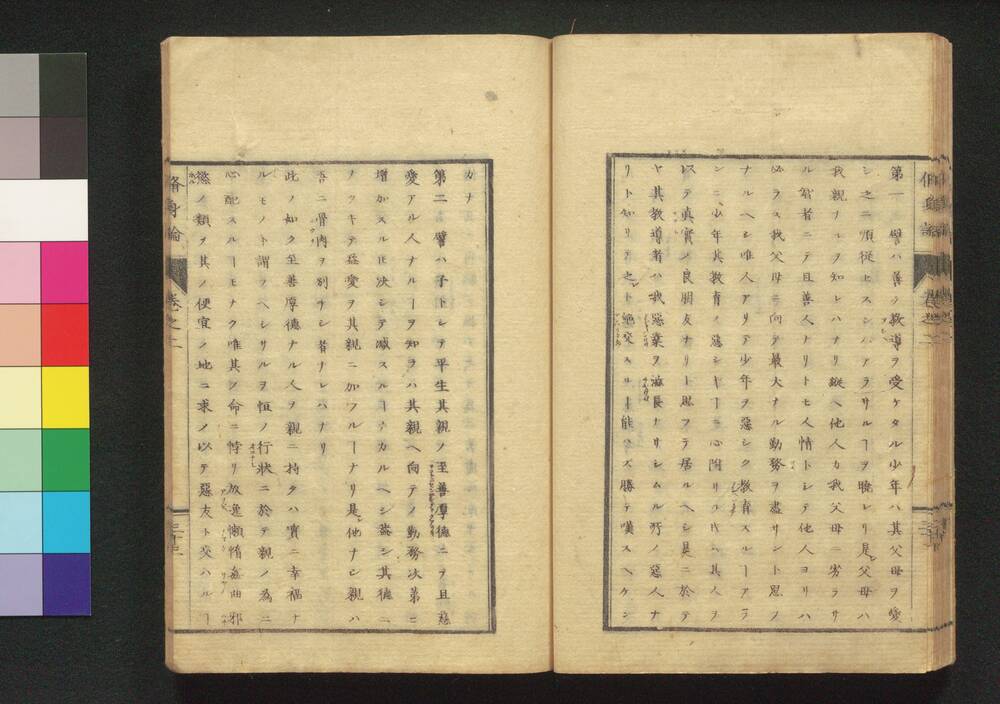 第一 譬ハ善ク教導ヲ受ケタル少年ハ其父母ヲ愛
シ之ニ順從セスンハアラサルヿヲ曉レリ是父母ハ
我親ナルヲ知レハナリ縱ヘ他人カ我父母ニ劣ラサ
ル賢者ニテ且善人ナリトモ人情トシテ他人ヨリハ
必ラス我父母ニ向テ最大ナル勤務ヲ盡サント思フ
ナルヘシ唯人アリテ少年ヲ惡シク教育スルヿアラ
ンニ少年其教育ノ惡シキヿニ心附
以テ真實ノ良朋友ナリト思フテ居ルヘシ是ニ於テ
ヤ其教導者ハ我惡業ヲ滋長ナリシムル所ノ惡人ナ
リト知リテ之ト絶交スルヿ能ハズ勝テ嘆スヘケン
カナ
第二 譬ハ子トシテ平生其親ノ至善厚德ニヲ且慈
愛アル人ナルヿヲ知ラハ其親ヘ向テノ勤務次第ニ
増加スル𪜈決シテ減スルヿナカルヘシ蓋シ其德ニ
ノツキテ慈愛ヲ其親ニ加フルヿナリ是他ナシ親ハ
吾ニ骨肉ヲ別ケシ者ナレハナリ
此ノ如ク至善厚德ナル人ヲ親ニ持タハ實ニ幸福ナ
ルモノト謂フヘシサルヲ恒ノ行狀ニ於テ親ノ為ニ
心配スルヿモナク唯其ノ命ニ悖リ放逸懶惰姦曲邪
慾ノ類ヲ其ノ便宜ノ地ニ求メ以テ惡友ト交ハルヿ
脩身論 卷之二